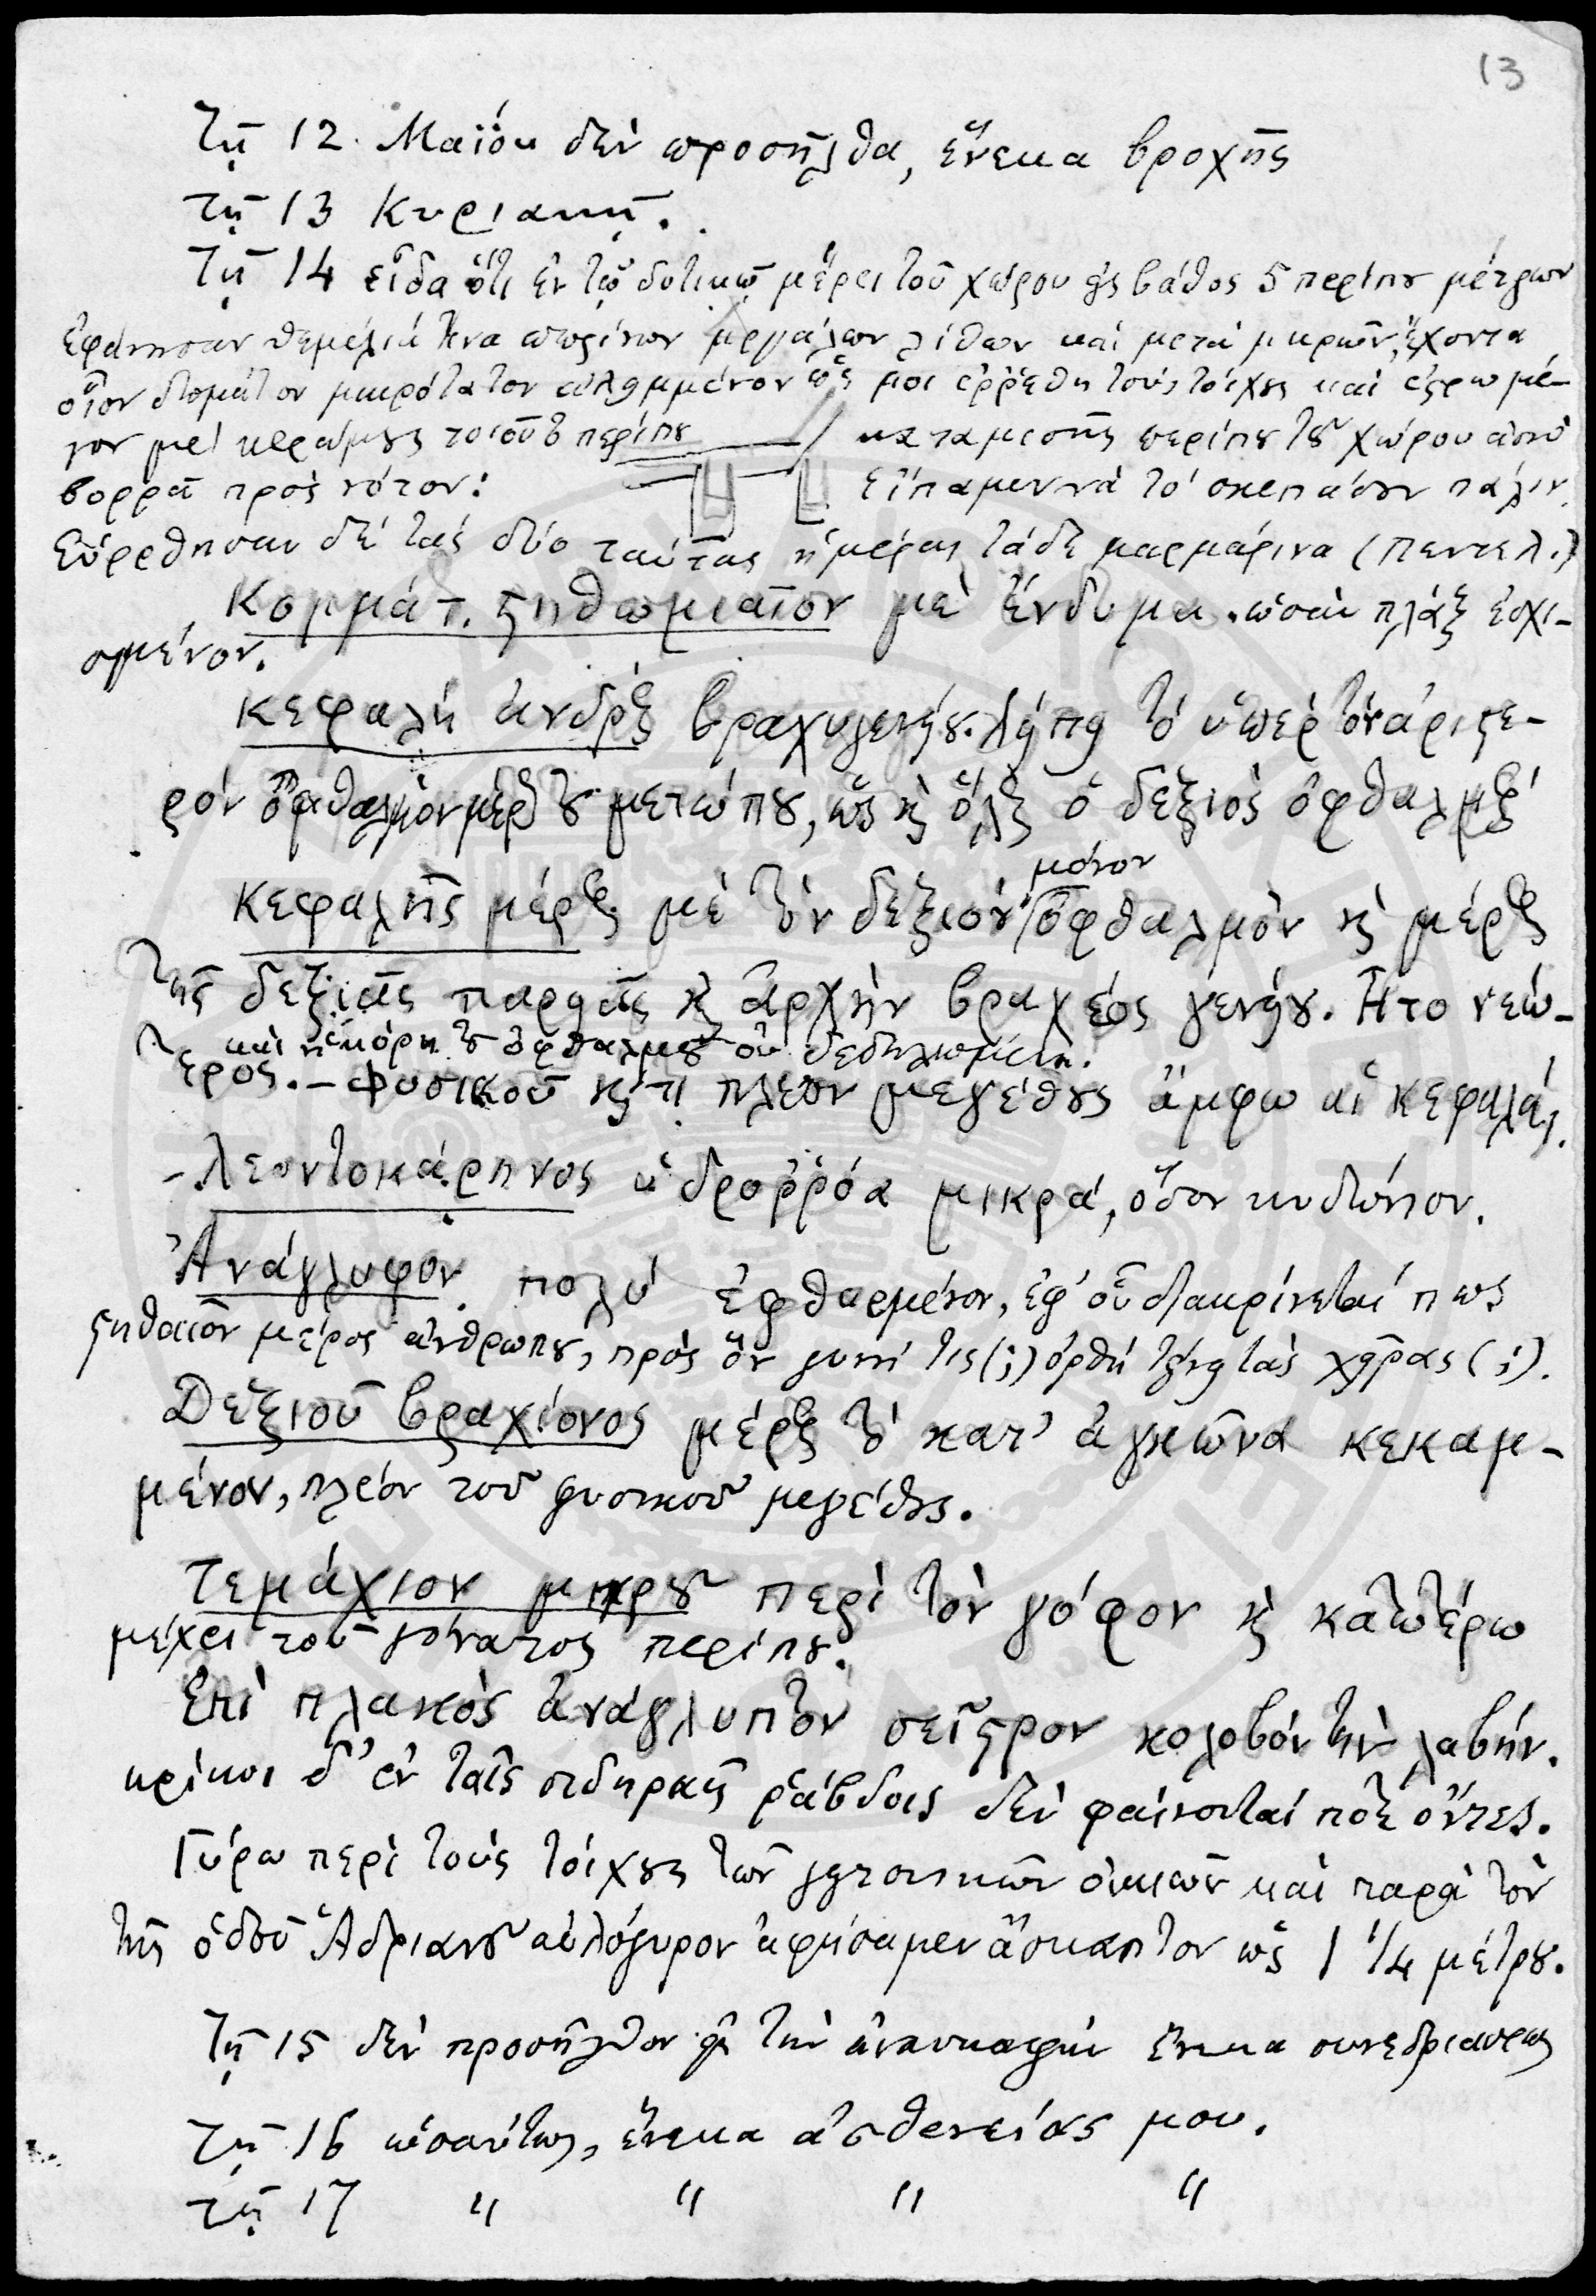 13
τῇ 12 Μαΐου δὲν προσῆλθα, ἕνεκα βροχῆς
τῇ 13 Κυριακῇ.
τῇ 14 εἶδα ὅτι ἐν τῷ δυτικῷ μέρει τοῦ χώρου εἰς βάθος 5 περίπου μέτρων
ἐφάνησαν θεμέλιά τινα πωρίνων μεγάλων λίθων καὶ μετὰ μικρῶν, ἔχοντα
οἷον δωμάτιον μικρότατον ὡς μοι ἐρρέθη τοὺς τοίχους καὶ
μὲ κεράμους τοιοῦτο περίπου κατὰ μεσῆς περίπου τοῦ χώρου ἀπὸ
βορρᾶ πρὸς νότον: εἴπαμεν νὰ τὸ σκεπάσουν πάλιν.
Εὑρέθησαν δὲ τὰς δύο ταύτας ἡμέρας τάδε μαρμάρινα (Πεντελ.)
Κομμάτ. στηθωμιαῖον μὲ ἔνδυμα. ὡσὰν πλὰξ ἐσχι-
σμένον.
Κεφαλὴ ἀνδρὸς βραχυγενείου. λείπει τὸ ὑπὲρ τὸν ἀριστε-
ρὸν ὀφθαλμὸν μέρος τοῦ μετώπου, ὡς καὶ ὅλος ὁ δεξιὸς ὀφθαλμός
Κεφαλῆς μέρος μὲ τὸν δεξιὸν μόνον ὀφθαλμὸν καὶ μέρος
τῆς δεξιᾶς παρειᾶς καὶ ἀρχὴν βραχέος γενείου. Ἦτο νεώ-
τερος. καὶ ἡ κόρη τοῦ ὀφθαλμοῦ οὐ δεδηλωμένη. – φυσικοῦ καί τι πλέον μεγέθους ἄμφω αἱ κεφαλαί.
- Λεοντοκάρηνος ὑδρορρόα μικρά, ὅσον κυδώνιον.
Ἀνάγλυφον πολὺ ἐφθαρμένον, ἐφ' οὗ διακρίνεταί πως
στηθαῖον μέρος ἀνθρώπου, πρὸς ὃν γυνή τις (;) ὀρθὴ τείνει τὰς χεῖρας (;).
Δεξιοῦ βραχίονος μέρος τὸ κατ' ἀγκῶνα κεκαμ-
μένον, πλέον τοῦ φυσικοῦ μεγέθους.
Τεμάχιον μικροῦ περὶ τὸν γόφον καὶ κατωτέρω
μέχρι τοῦ γόνατος περίπου.
Ἐπὶ πλακὸς ἀνάγλυπτον σεῖστρον κολοβὸν τὴν λαβήν.
κρίκοι δ' ἐν ταῖς σιδηραῖς ῥάβδοις δὲν φαίνονταί ποτε ὄντες.
Γύρω περὶ τοὺς τοίχους τῶν γειτονικῶν οἰκιῶν καὶ παρὰ τὸν
τῆς ὁδοῦ Ἀδριανοῦ αὐλόγυρον ἀφήσαμεν ἄσκαπτον ὡς 1 1/4 μέτρου.
τῇ 15 δὲν προσῆλθον εἰς τὴν ἀνασκαφὴν ἕνεκα συνεδριάσεως
τῇ 16 ὡσαύτως, ἕνεκα ἀσθενείας μου.
τῇ 17 " " " "